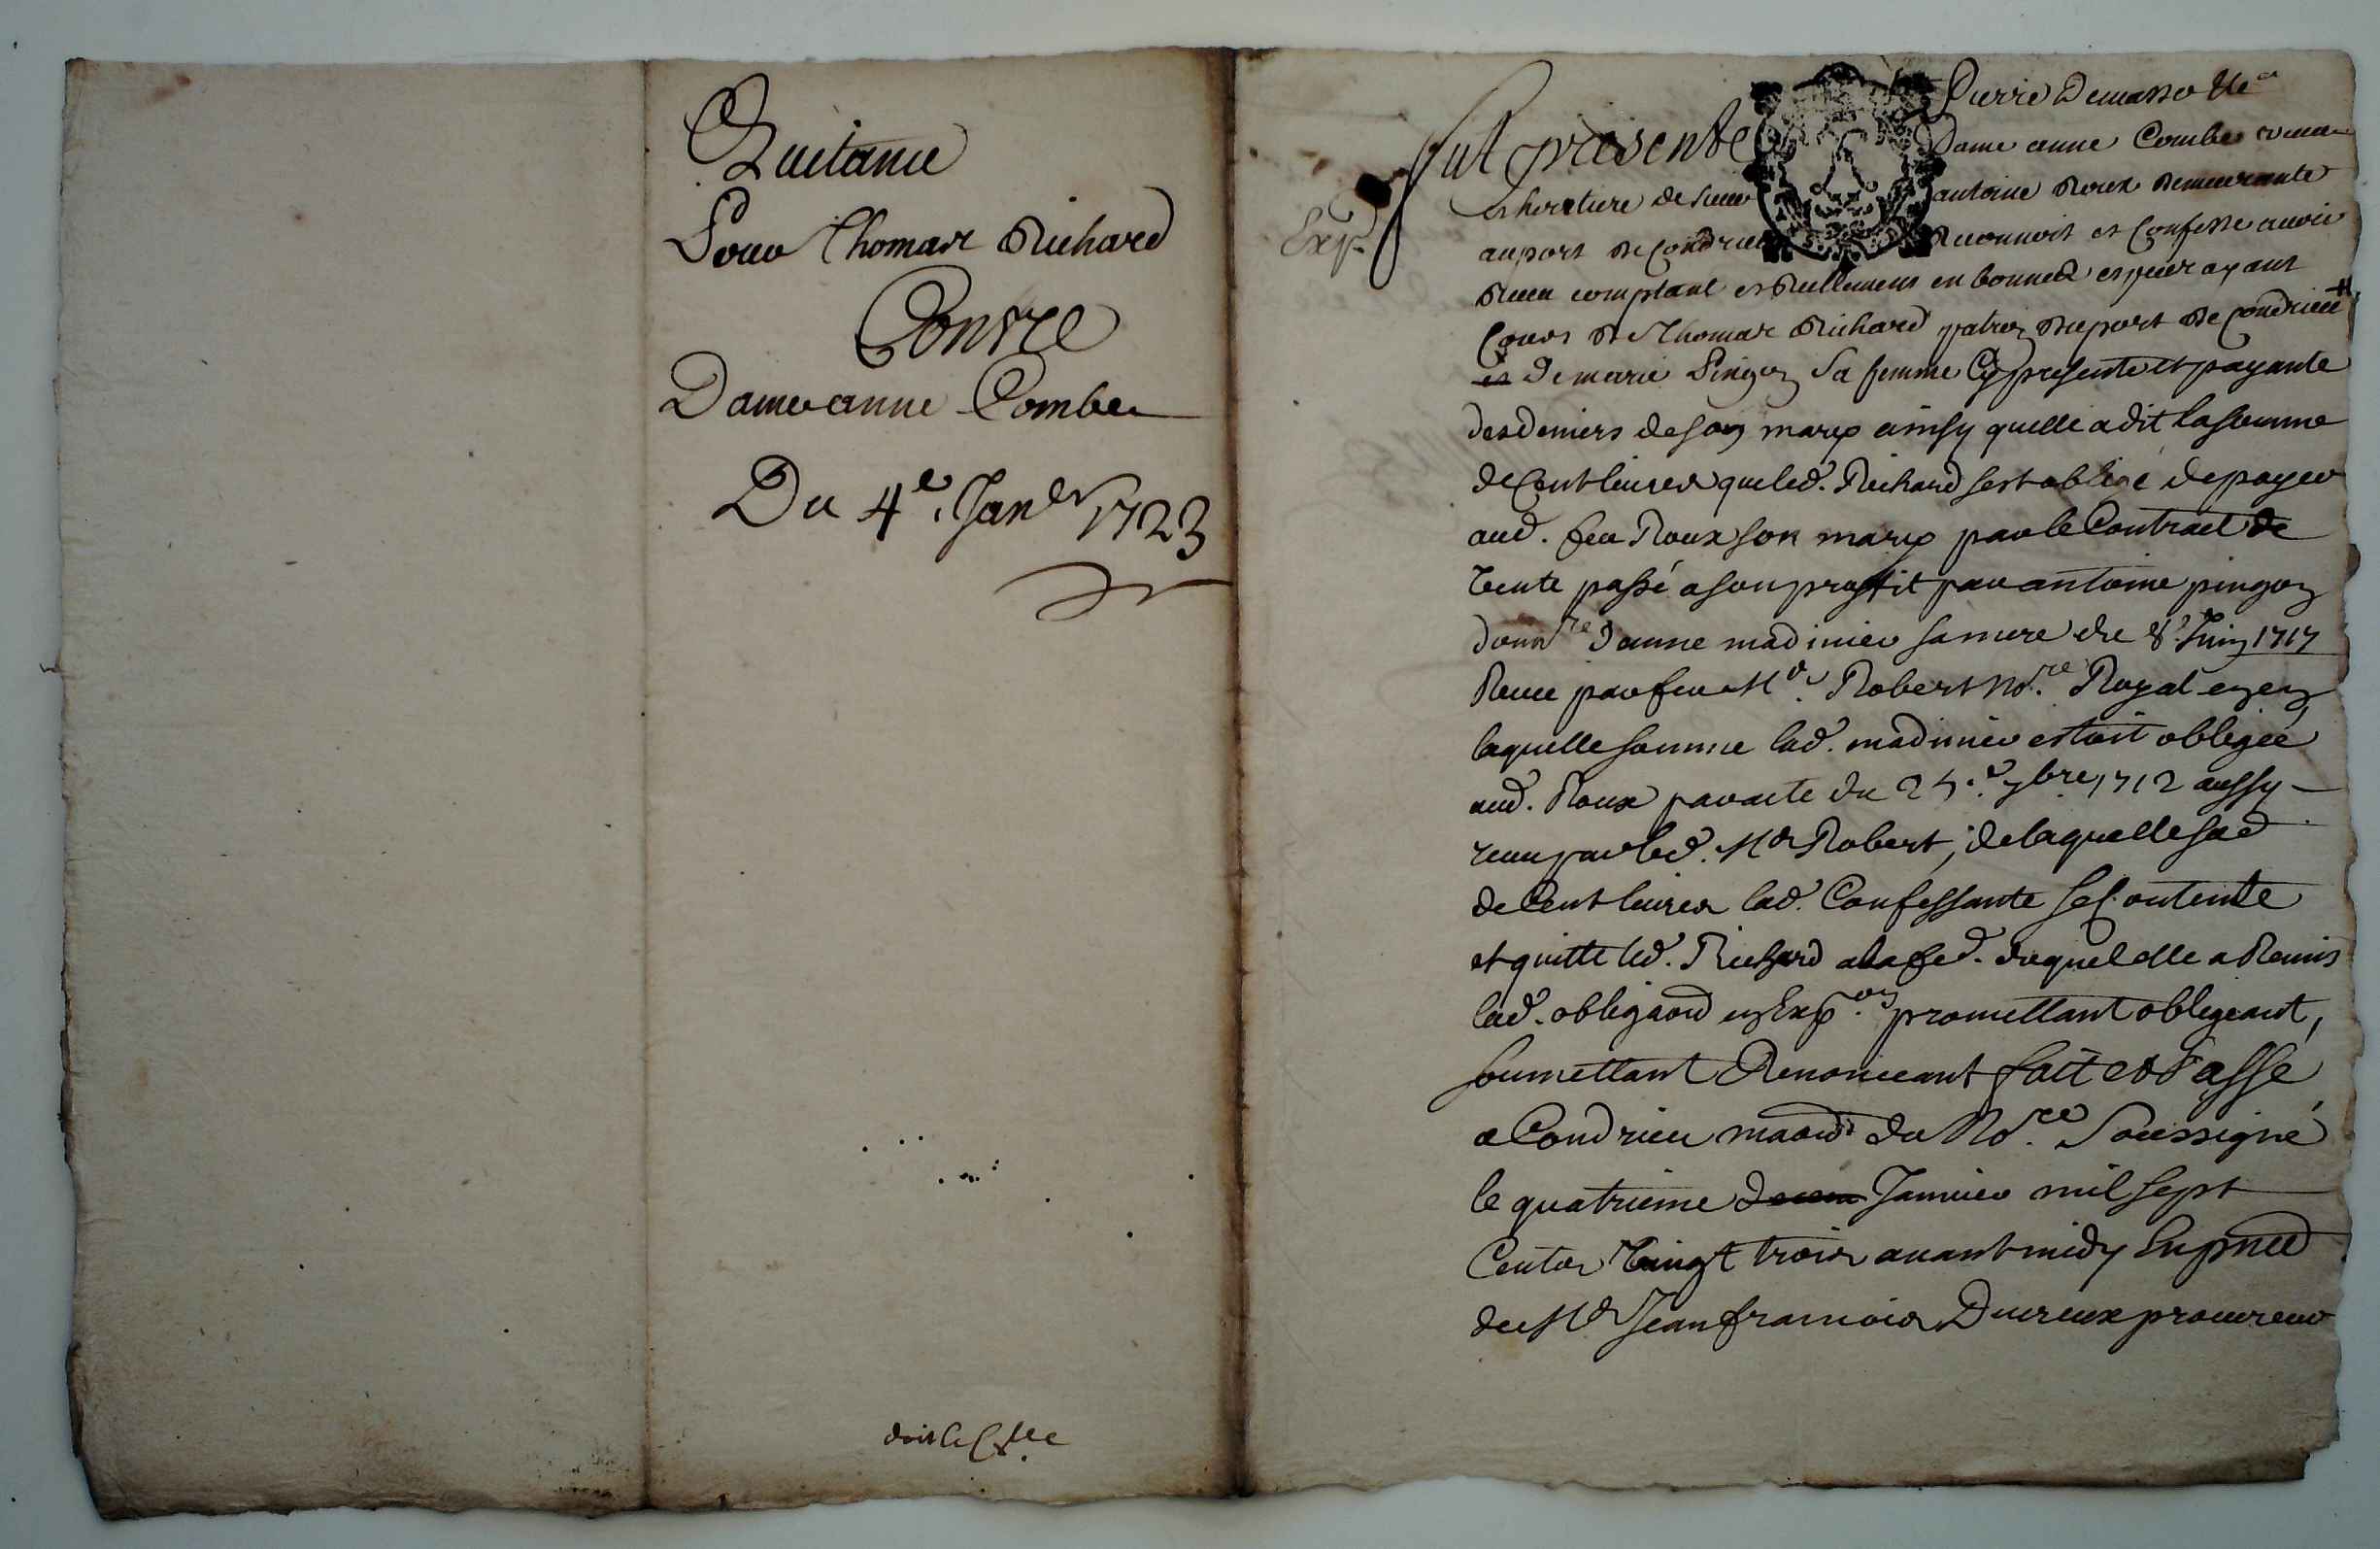 Quitance
Pour Thomas Richard
Contre
Dame anne Combe
Du 4e. Janer 1723
doit le
Pierre Demasso
fut presente Dame anne Combe
heritiere de sieur antoine Roux demeurante
au port de Condrieu Reconnoit et Confesse avoir
Receu comptant et Reellement en bonnes especes ayant
Cours de Thomas Richard patron du port de Condrieu
et De marie Pingon Sa femme Cy presente et payante
des deniers de son mary ainsy quelle a dit la somme
de Cent livres que led. Richard sest obligé de payer
aud. feu Roux son mary par le Contract de
Vente passé a son proffit par antoine pingon
donnre Danne madinier sa mere du 8e. Juin 1717
Receu par feu Me. Robert Nore. Royal en
laquelle somme lad. madinier estoit obligée
aud. Roux par acte du 25e. 7bre 1712 aussy
receu par led. Me Robert, de laquelle
de Cent livres lad. Confessante se Contente
et quitte led. Richard duquel elle a Remis
lad. obligaon en Expon. promettant obligeant,
soumettant Renonceant fait et Passé
a Condrieu maon du Nore. Soussigné
le quatrieme Janvier mil sept
Cents Vingt trois avant midy En pnce
de Me Jean francois Ducreux procureur
Exp.